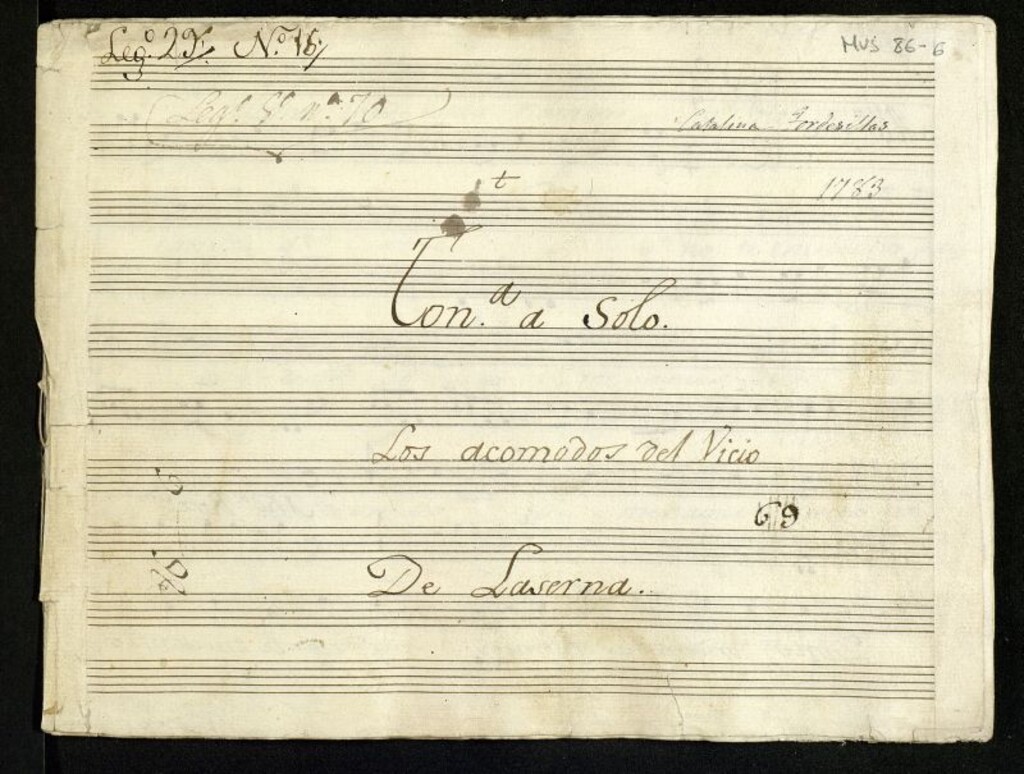 Leg.º 29. N.º 16
MUS 86-6
Leg.º 5º n.º 70
Catalina Tordesillas
1783
t
Ton.ª a Solo.
Los acomodos del Vicio
69
De Laserna.